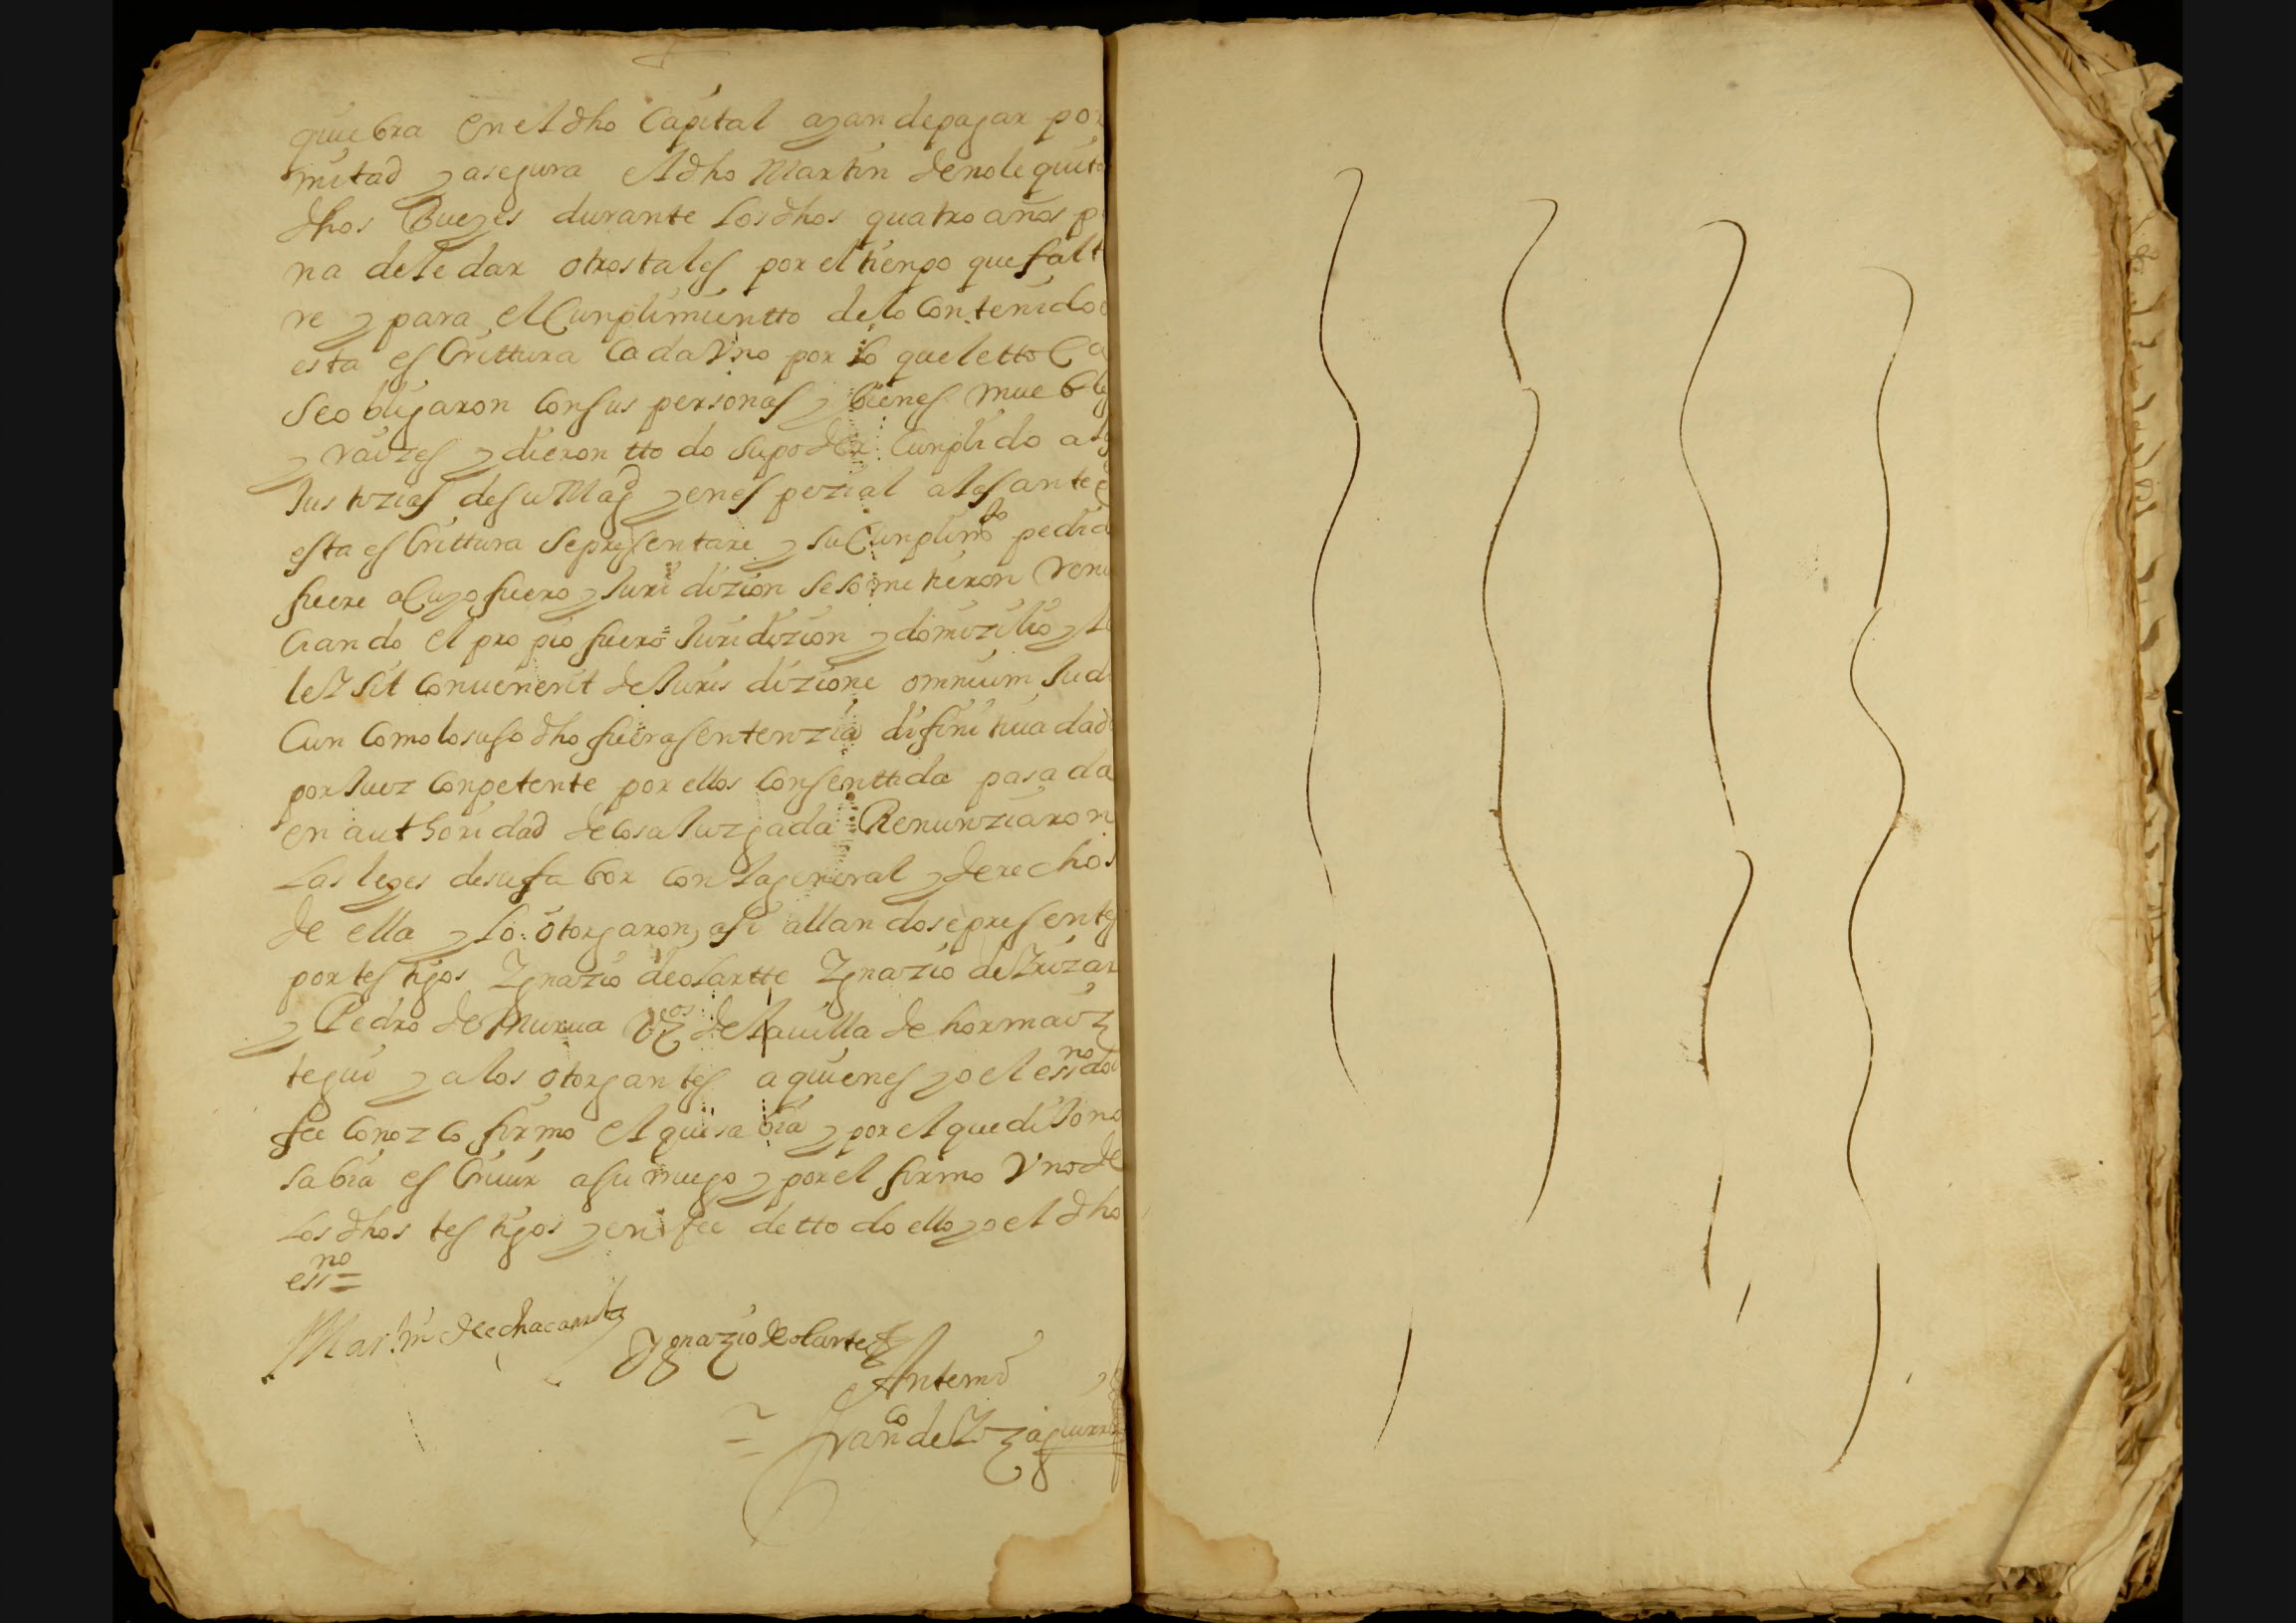 quiebra en el dho Capital ayan de pagar por
mitad y asegura el dho Martin de no le quitar
dhos Bueyes durante los dhos quatro años p
na de le dar otros tales por el tienpo que falt
re y para el Cunplimientto de lo Contenido
esta escrittura Cada Vno por lo que le tto Ca
se obligaron Con sus personas y bienes mueble
y raizes y dieron ttodo su poder Cunplido a
Justizias de su Magd y en espezial a las ante q
esta escrittura se presentare y su Cunplimto pedid
fuere a Cuyo fuero y Juridizion se sometieron Renu
Ciando el propio fuero Juridizion y domizilio y la
ley sit Convenerit de Jurisdizione omnium Judi
Cun Como lo suso dho fuera sentenzia difinitiua dad
por Juez Conpetente por ellos Consenttida pasada
en authoridad de Cosa Juzgada Renunziaron
Las leyes de su fabor Con la general y derechos
de ella y lo otorgaron asi allandose presentes
por testigos Ygnazio de olartte Ygnazio de
y Pedro de Murua Vezos de la uilla de hormaiz
tegui y a los otorgantes a quienes yo el essno doi
fee Conozco firmo el que sabia y por el que dijo no
sabia escriuir a su ruego y por el firmo Vno de
Los dhos testigos y en fee de ttodo ello yo el dho
essno=
Martin de echacarreta
Ygnazio de olarte
Antemi
Franco de Yzaguirre